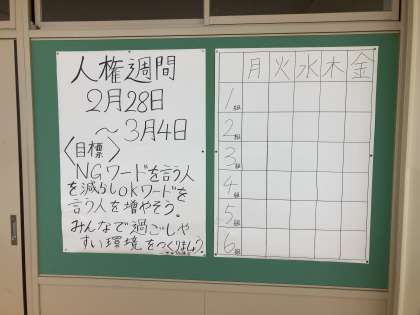 人権週間
2月28日
～3月4日
〈目標〉
NGワードを言う人
を減らしOKワードを
言う人を増やそう。
みんなで過ごしや
すい環境をつくりましょう
月 火 水 木 金
1組
2組
3組
4組
5組
6組